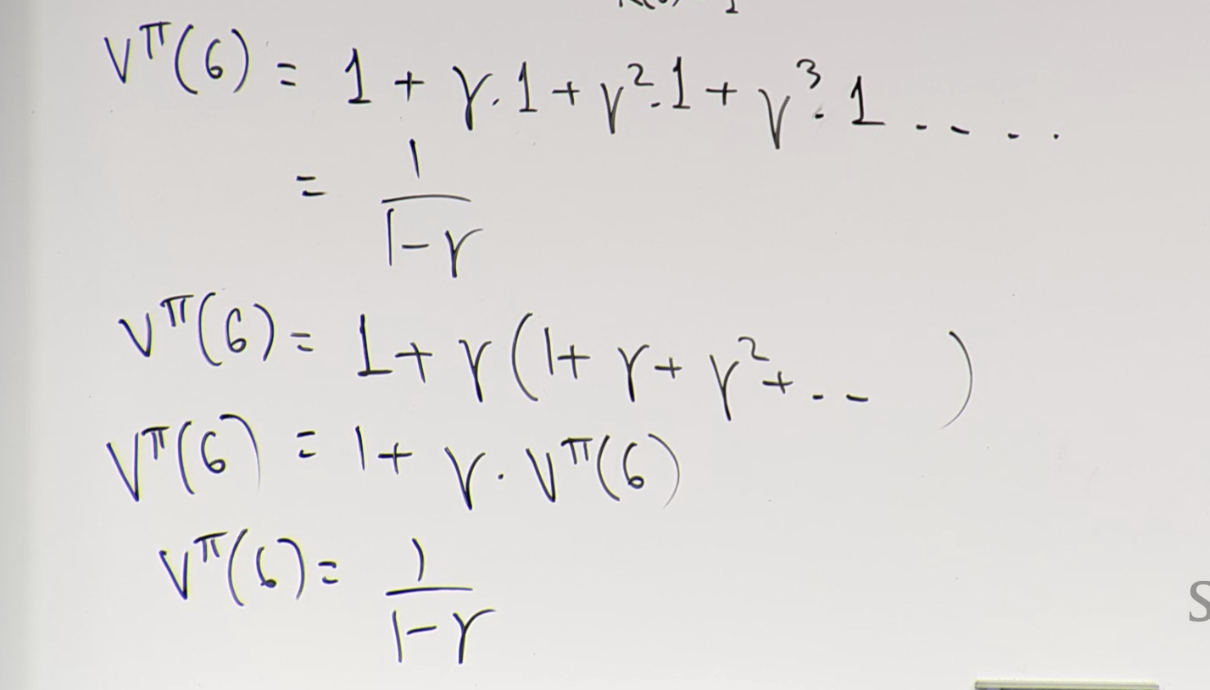 V^π(6) = 1 + γ.1 + γ².1 + γ³.1 ....
= 1/(1-γ)
V^π(6) = 1 + γ(1 + γ + γ² + .. )
V^π(6) = 1 + γ. V^π(6)
V^π(6) = 1/(1-γ)
S